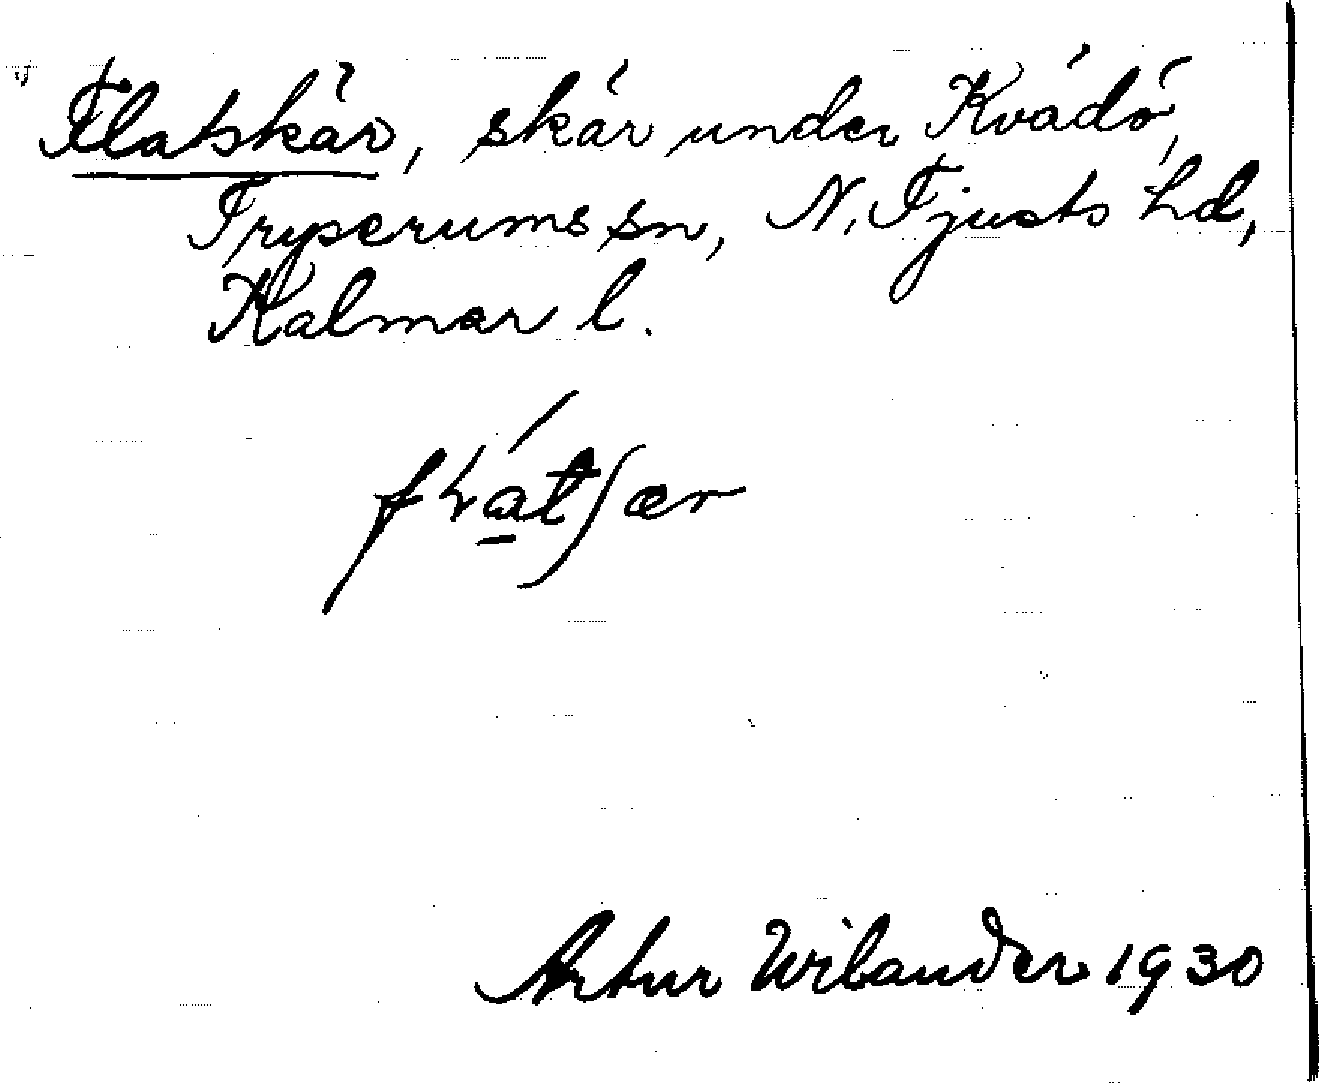 Flatskär, skär under Kvädö,
Tryserums sn, N. Tjusts hd,
Kalmar l.
Artur Wilander 1930